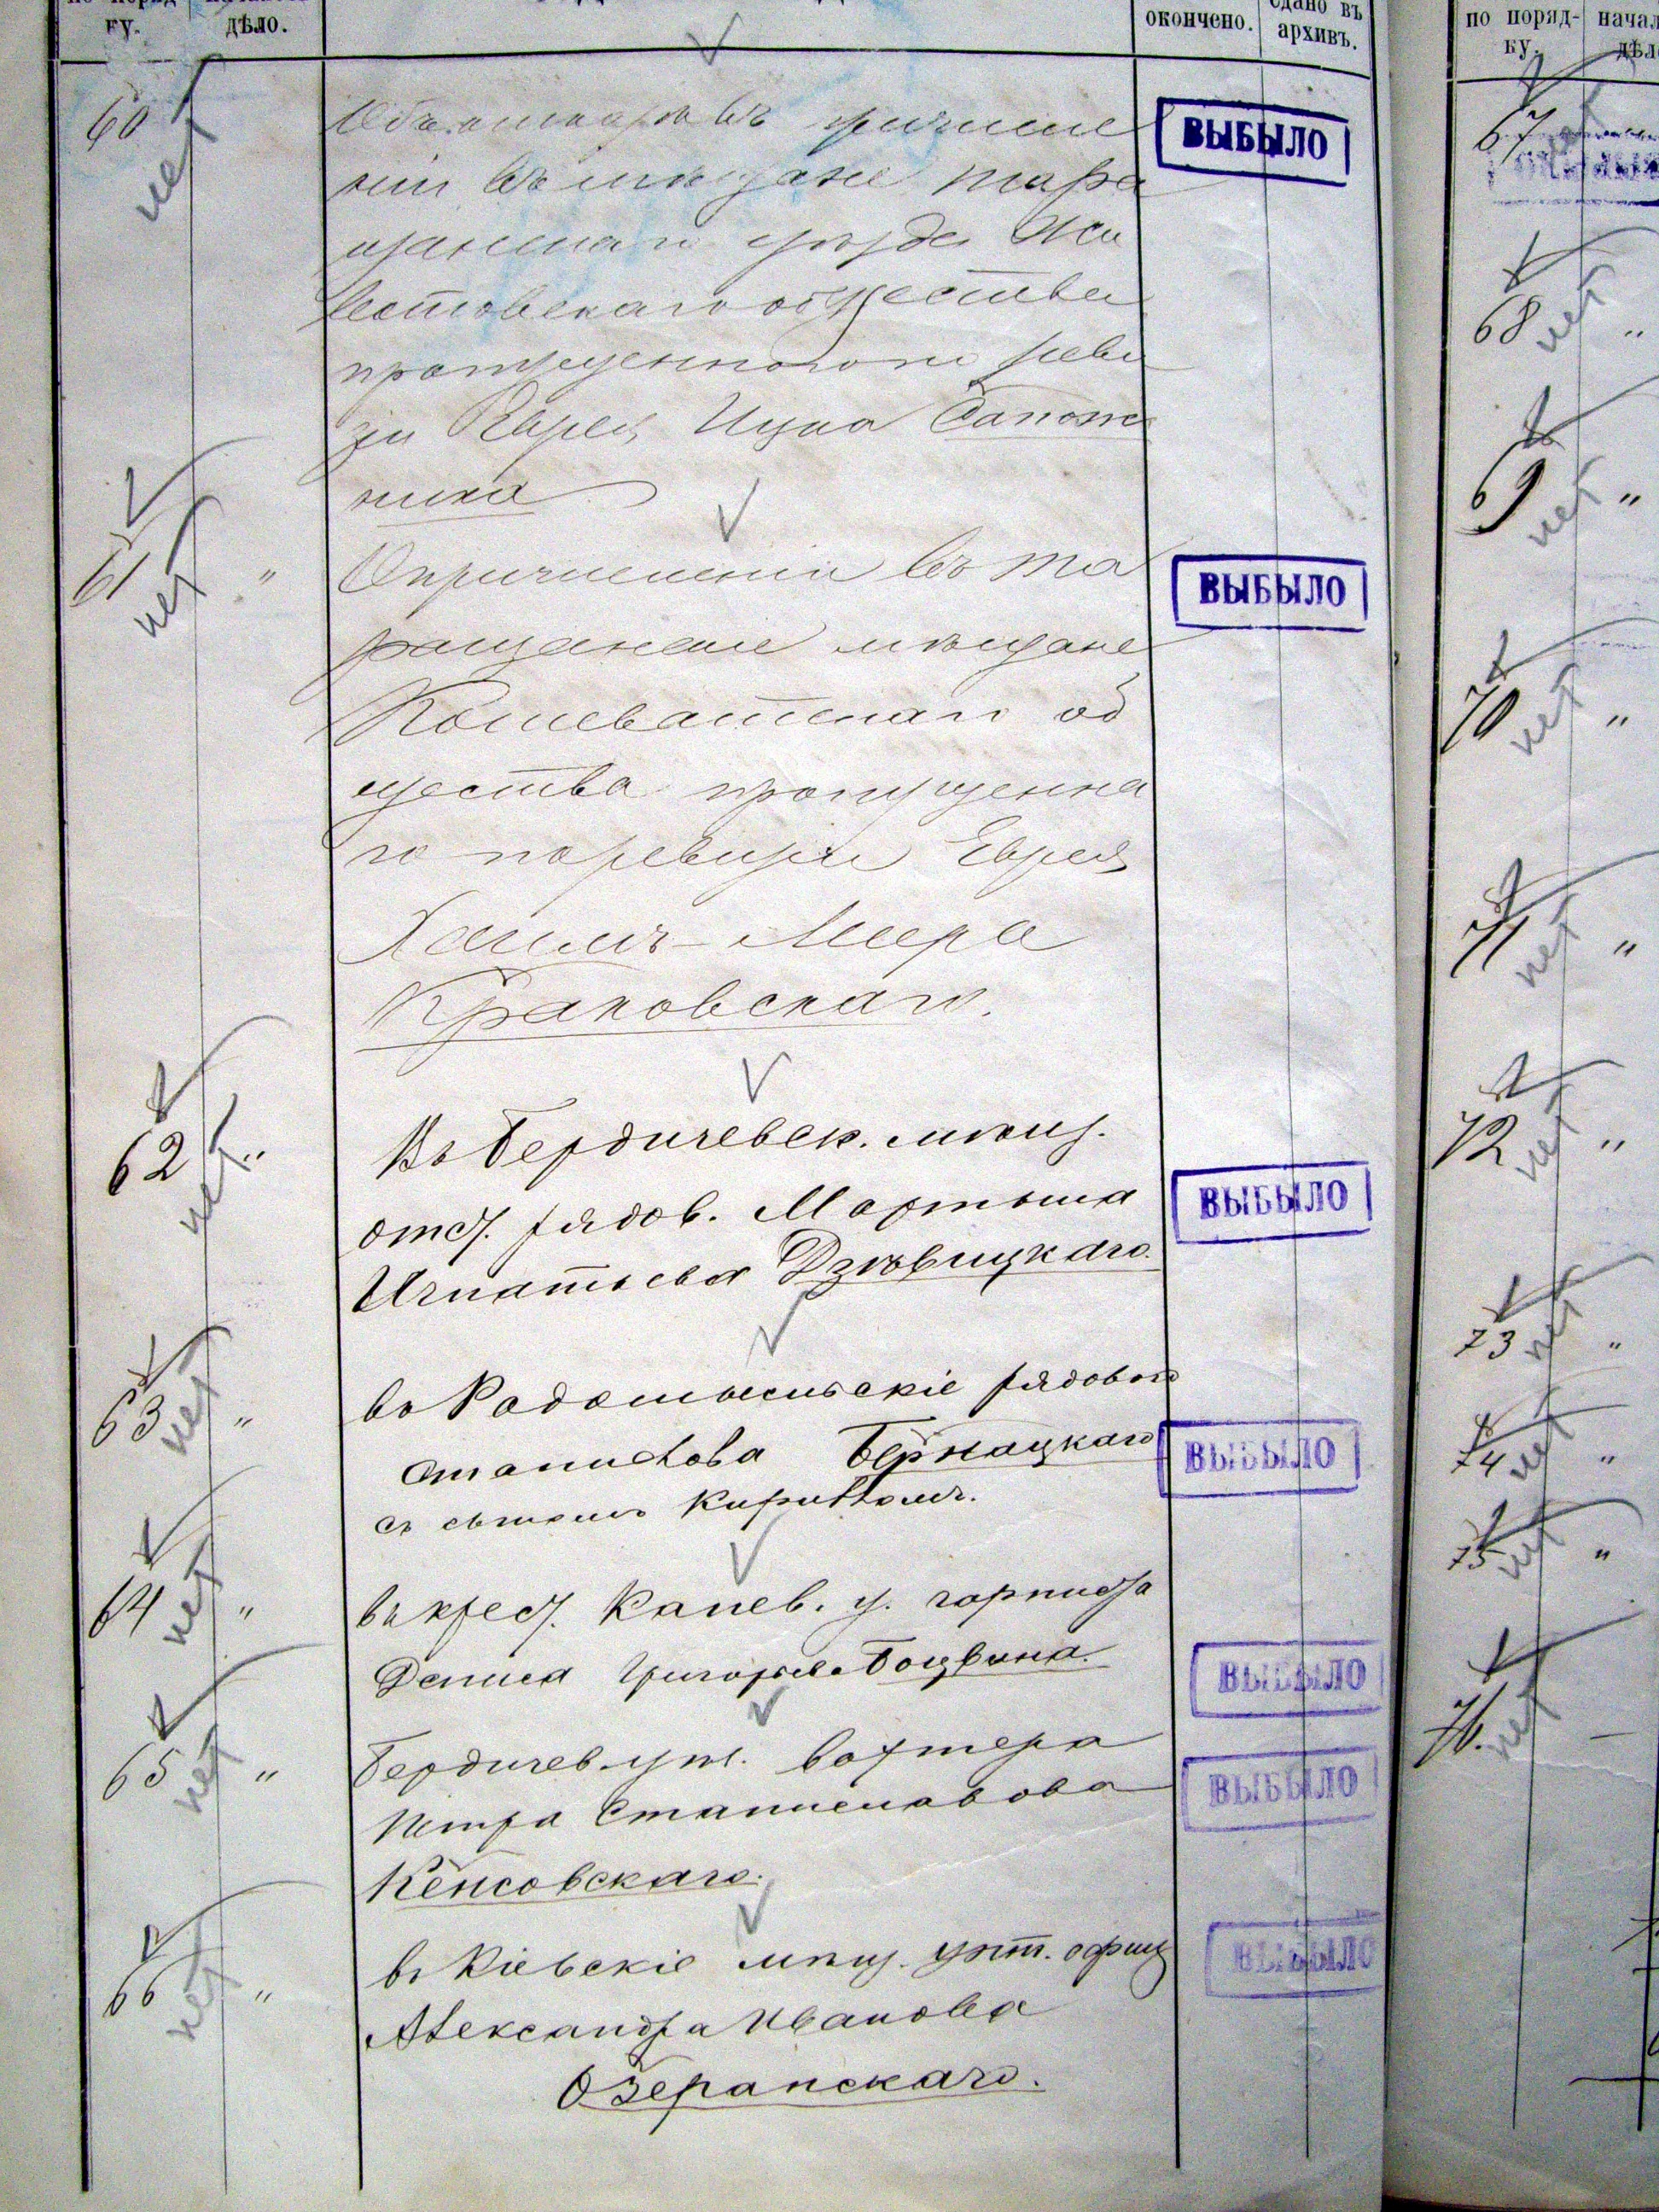 ку.
дѣло.
окончено.
сдано въ
архивъ.
60
нет
причисле
ніи въ мѣщане Тара
щанскаго уѣзда Жи
вотовскаго общества
пропущеннаго по реви
зіи Еврея Ицка Сапож
ника
ВЫБЫЛО
61
нет
"
О причисленіи въ Та
ращанскіе мѣщане
Кошеватскаго об
щества пропущенна
го по ревизіи Еврея
Хаимъ-Меера
Краковскаго.
ВЫБЫЛО
62
нет
"
Въ Бердичевск. мѣщ.
отст. рядов. Мартына
Игнатьева Дзѣвицкаго.
ВЫБЫЛО
63
нет
"
въ Радомысльскіе рядового
Станислава Бернацкаго
съ сыномъ Кириломъ.
ВЫБЫЛО
64
нет
"
въ крест. Канев. у. горниста
Дениса Григорьева Боцвина.
ВЫБЫЛО
65
нет
"
Бердичев. уѣз. вахтера
Петра Станиславова
Кенсовскаго.
ВЫБЫЛО
66
нет
"
въ Кіевскіе мѣщ. унт. офиц
Александра Иванова
Озеранскаго.
ВЫБЫЛО
по поряд-
ку.
67
68
нет
"
69
нет
"
70
нет
"
71
нет
"
72
нет
"
73
нет
"
74
нет
"
75
нет
"
76.
нет